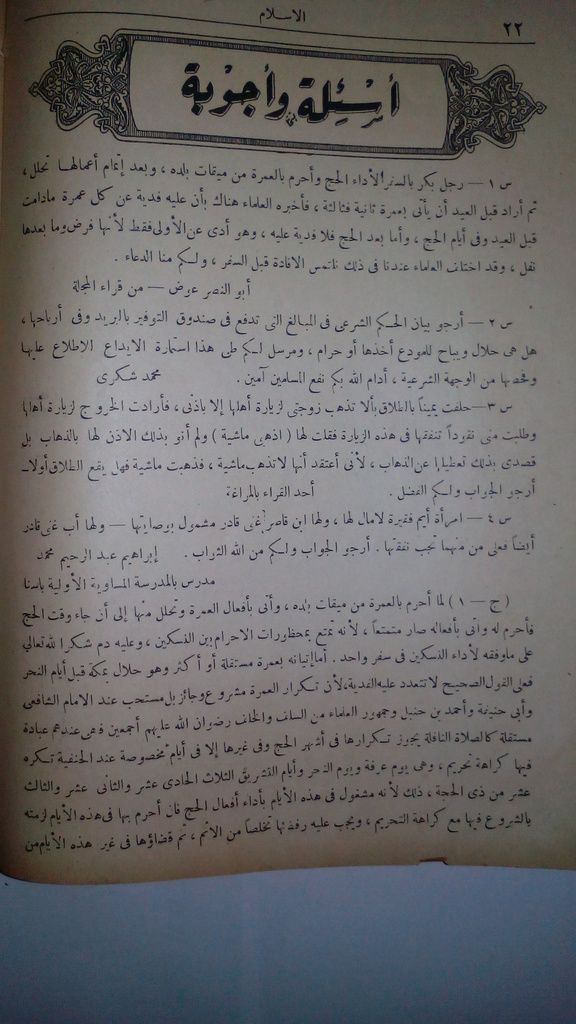 ٢٢
الاسلام
أسئلة وأجوبة
س ١ — رجل بكر بالسفر لأداء الحج وأحرم بالعمرة من ميقات بلده ، وبعد إتمام أعمالها تحلل ،
ثم أراد قبل العيد أن يأتى بعمرة ثانية فثالثة ، فأخبره العلماء هناك بأن عليه فدية عن كل عمرة مادامت
قبل العيد وفى أيام الحج ، وأما بعد الحج فلا فدية عليه ، وهو أدى عن الأولى فقط لأنها فرض وما بعدها
نفل ، وقد اختلف العلماء عندنا فى ذلك نلتمس الافادة قبل السفر ، ولكم منا الدعاء .
أبو النصر عوض — من قراء المجلة
س ٢ — أرجو بيان الحكم الشرعى فى المبالغ التى تدفع فى صندوق التوفير بالبريد وفى أرباحها ،
هل هى حلال ويباح للمودع أخذها أو حرام ، ومرسل لكم طى هذا استمارة الايداع الاطلاع عليها
وفحصها من الوجهة الشرعية ، أدام الله بكم نفع المسلمين آمين . محمد شكرى
س ٣ — حلفت يميناً بالطلاق بألا تذهب زوجتى لزيارة أهلها إلا باذنى ، فأرادت الخروج لزيارة أهلها
وطلبت منى نقوداً تنفقها فى هذه الزيارة فقلت لها ( اذهبى ماشية ) ولم أنو بذلك الاذن لها بالذهاب بل
قصدى بذلك تعطيلها عن الذهاب ، لأنى أعتقد أنها لاتذهب ماشية ، فذهبت ماشية فهل يقع الطلاق أولا ــ
أرجو الجواب ولكم الفضل . أحد القراء بالمراغة
س ٤ — امرأة أيم فقيرة لامال لها ، ولها ابن قاصر غنى قادر مشمول بوصايتها — ولها أب غنى قادر
أيضاً فعلى من منهما تجب نفقتها . أرجو الجواب ولكم من الله الثواب . إبراهيم عبد الرحيم محمد
مدرس بالمدرسة الأولية باسنا
( ج — ١ ) لما أحرم بالعمرة من ميقات بلده ، وأتى بأفعال العمرة وتحلل منها إلى أن جاء وقت الحج
فأحرم له وأتى بأفعاله صار متمتعاً ، لأنه تمتع بمحظورات الاحرام بين النسكين ، وعليه دم شكرا لله تعالى
على ماوفقه لأداء النسكين فى سفر واحد . أما إتيانه بعمرة مستقلة أو أكثر وهو حلال بمكة قبل أيام النحر
فعلى القول الصحيح لاتتعدد عليه الفدية ، لأن تكرار العمرة مشروع وجائز بل مستحب عند الامام الشافعى
وأبى حنيفة وأحمد بن حنبل وجمهور العلماء من السلف والخلف رضوان الله عليهم أجمعين فهى عندهم عبادة
مستقلة كالصلاة النافلة يجوز تكرارها فى أشهر الحج وفى غيرها إلا فى أيام مخصوصة عند الحنفية تكره
فيها كراهة تحريم ، وهى يوم عرفة ويوم النحر وأيام التشريق الثلاث الحادى عشر والثانى عشر والثالث
عشر من ذى الحجة ، ذلك لأنه مشغول فى هذه الأيام بأداء أفعال الحج فان أحرم بها فى هذه الأيام لزمته
بالشروع فيها مع كراهة التحريم ، ويجب عليه رفضها تخلصاً من الاثم ، ثم قضاؤها فى غير هذه الأيام من